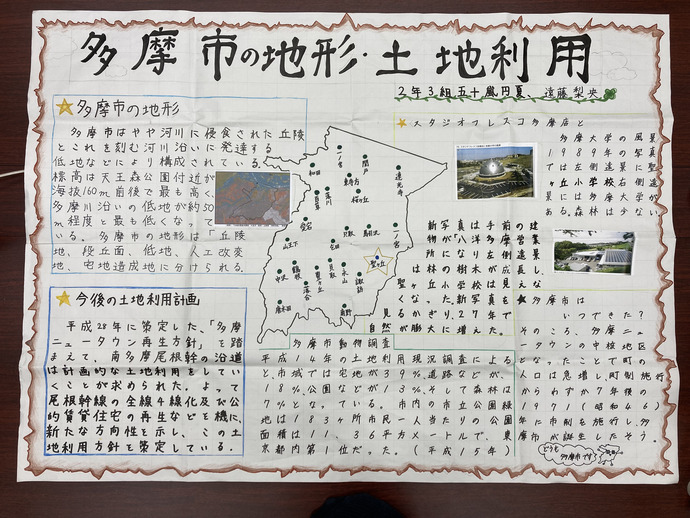 多摩市の地形・土地利用
2年3組五十嵐円夏、遠藤梨央
多摩市の地形
多摩市はやや河川に侵食された丘陵
とこれを刻む河川沿いに発達する
低地などにより構成されている。
標高は天王森公園付近が
海抜160m前後で最も高く、
多摩川沿いの低地が約50
m程度と最も低くなって
いる。多摩市の地形は「丘陵
地、段丘面、低地、人工改変
地、宅地造成地に分けられる。
今後の土地利用計画
平成28年に策定した、「多摩
ニュータウン再生方針」を踏
まえて、南多摩尾根幹の沿道
は計画的な土地利用をしてい
くことが求められた。よって
尾根幹線の全線4線化及び公
的賃貸住宅の再生などを機に、
新たな方向性を示し、この土
地利用方針を策定している.
一ノ宮
関戸
和田
東寺方
連光寺
百草
落川
桜ヶ丘
愛宕
乞田
貝取
馬引沢
山王下
中沢
鶴牧
落合
豊ヶ丘
貝取
永山
諏訪
聖ヶ丘
唐木田
南野
スタジオフレスコ多摩店と
多摩大学の風景
1989年の写真
では左側遠景聖
ヶ丘小学校右側遠
多摩市動物調査
平成14年の土地利用現況調査による
と、市域では宅地が39%、道路などが
18%、公園などが13%、そして森林は
7%となっている。市内の市立公園緑
地は183ヶ所市民一人当たりの公園
面積は11、36平方メートルで、東
京都内第1位だった。(平成15年)
多摩市は
いつできた?
そのころ、多摩ニュ
ータウンの中枢地区
となったことで町の
人口は急増し、町制施行
からわずか7年後の
1971(昭和46)
年に市制を施行し、多
摩市が誕生したそう。
どうも
多摩市です